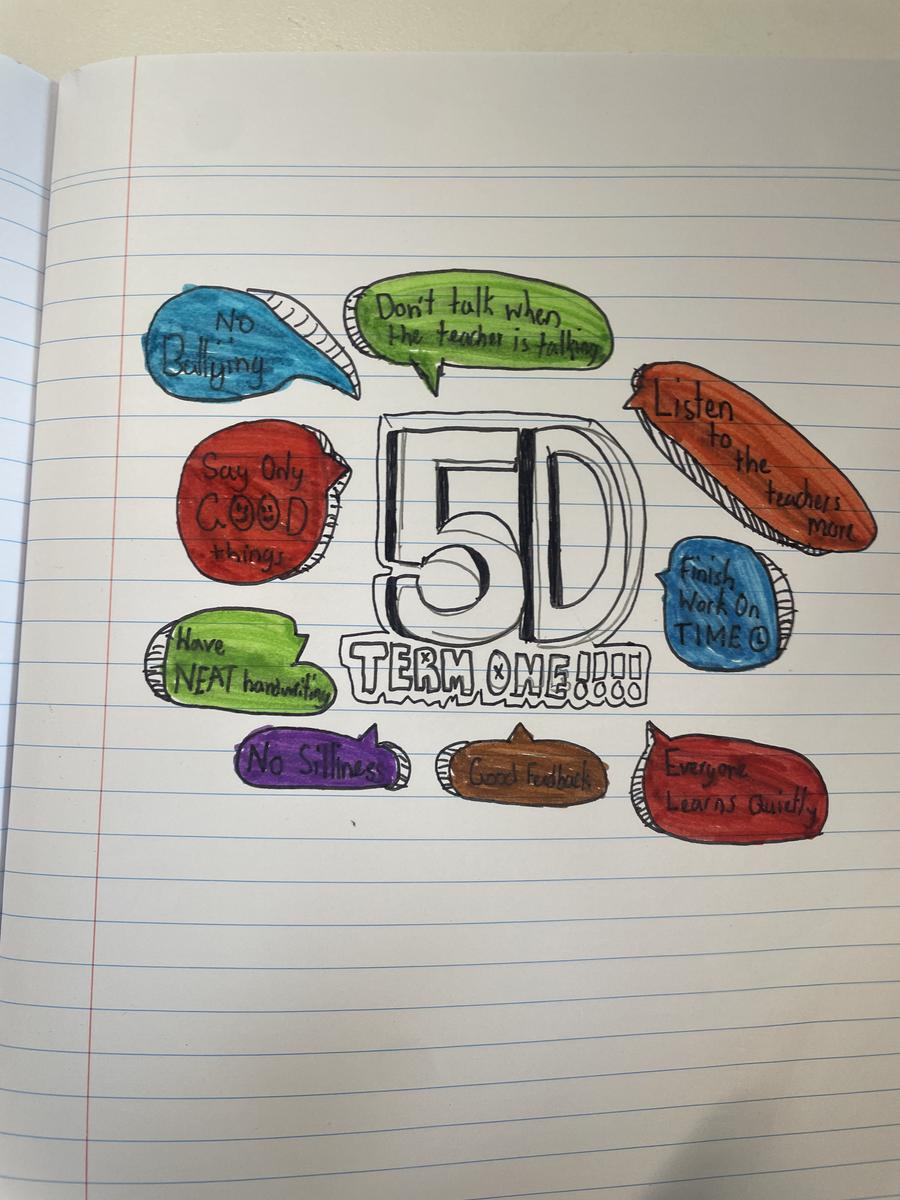 No
Bullying
Don't talk when
the teacher is talking
Listen
to
the
teachers
more
Say Only
GOOD
things
5D
TERM ONE!!!!
Finish
Work On
TIME
Have
NEAT handwriting
No Silliness
Good Feedback
Everyone
Learns Quietly